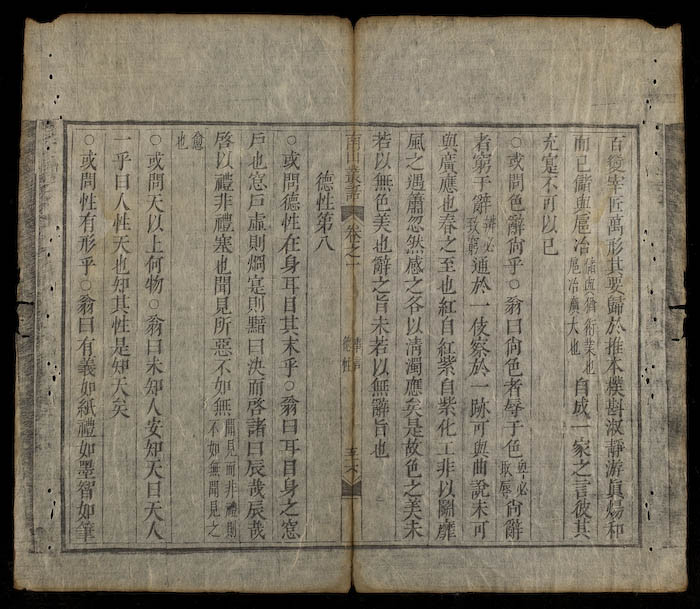 百宰匠萬形其要歸於推本樸斟淑靜游眞煬和
而已儲與扈冶儲與猶術業也扈冶廣大也自成一家之言彼其
充寔不可以已
○或問色辭尚乎○翁曰尚色者辱于色必取辱尚辭
者窮于辭辨必致窮通於一伎察於一跡可與曲說未可
與廣應也春之至也紅自紅紫自紫化工非以鬭靡
風之遇蕭忽然感之各以清濁應矣是故色之美未
若以無色美也辭之旨未若以無辭旨也
南山叢話 卷之一 德性
德性第八
○或問德性在身耳目其末乎○翁曰耳目身之窓
戶也窓戶虛則烱寔則黯曰決而啓諸曰辰哉辰哉
啓以禮非禮塞也聞見所惡不如無聞見而非禮則不如無聞見之
愈也
○或問天以上何物○翁曰未知人安知天曰天人
一乎曰人性天也知其性是知天矣
○或問性有形乎○翁曰有義如紙禮如墨智如筆